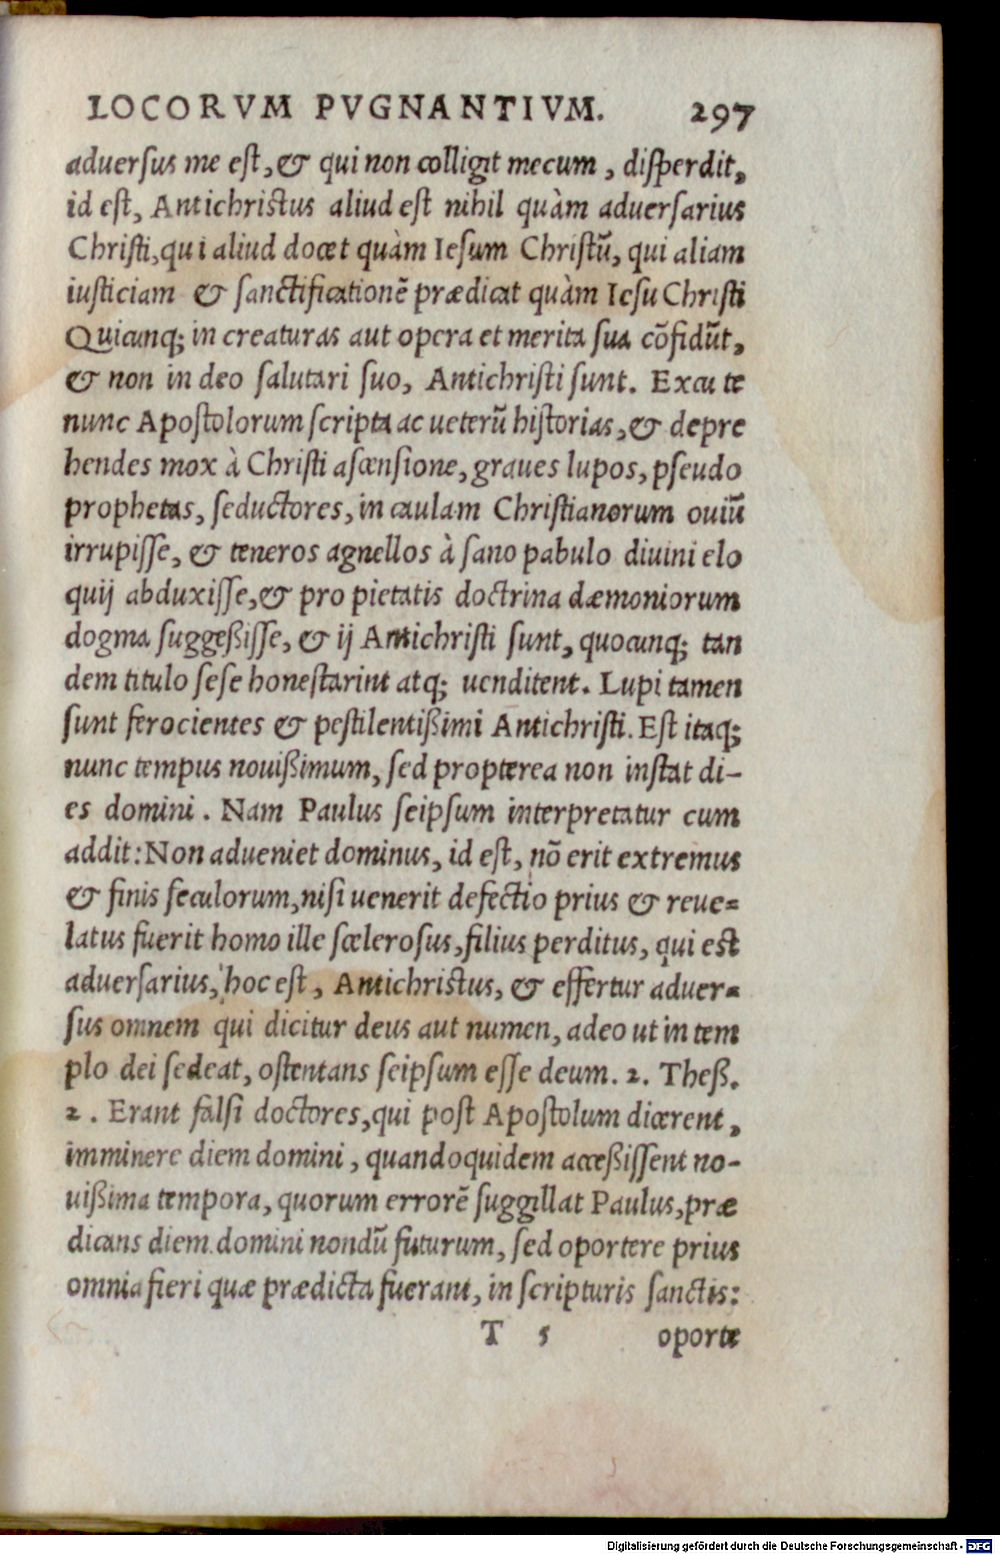 LOCORVM PVGNANTIVM. 297
aduersus me est, & qui non colligit mecum, disperdit,
id est, Antichristus aliud est nihil quàm aduersarius
Christi, qui aliud docet quàm Iesum Christū, qui aliam
iusticiam & sanctificationē prædicat quàm Iesu Christi
Quicunq; in creaturas aut opera et merita sua cōfidūt,
& non in deo salutari suo, Antichristi sunt. Excute
nunc Apostolorum scripta ac ueterū historias, & depre
hendes mox à Christi ascensione, graues lupos, pseudo
prophetas, seductores, in caulam Christianorum ouiū
irrupisse, & teneros agnellos à sano pabulo diuini elo
quij abduxisse, & pro pietatis doctrina dæmoniorum
dogma suggeßisse, & ij Antichristi sunt, quocunq; tan
dem titulo sese honestarint atq; uenditent. Lupi tamen
sunt ferocientes & pestilentißimi Antichristi. Est itaq;
nunc tempus nouißimum, sed propterea non instat di-
es domini. Nam Paulus seipsum interpretatur cum
addit: Non adueniet dominus, id est, nō erit extremus
& finis seculorum, nisi uenerit defectio prius & reue-
latus fuerit homo ille scelerosus, filius perditus, qui est
aduersarius, hoc est, Antichristus, & effertur aduer-
sus omnem qui dicitur deus aut numen, adeo ut in tem
plo dei sedeat, ostentans seipsum esse deum. 2. Theß.
2. Erant falsi doctores, qui post Apostolum dicerent,
imminere diem domini, quandoquidem acceßissent no-
uißima tempora, quorum errorē suggillat Paulus, præ
dicans diem domini nondū futurum, sed oportere prius
omnia fieri quæ prædicta fuerant, in scripturis sanctis:
T 5 oporte
Digitalisierung gefördert durch die Deutsche Forschungsgemeinschaft - DFG